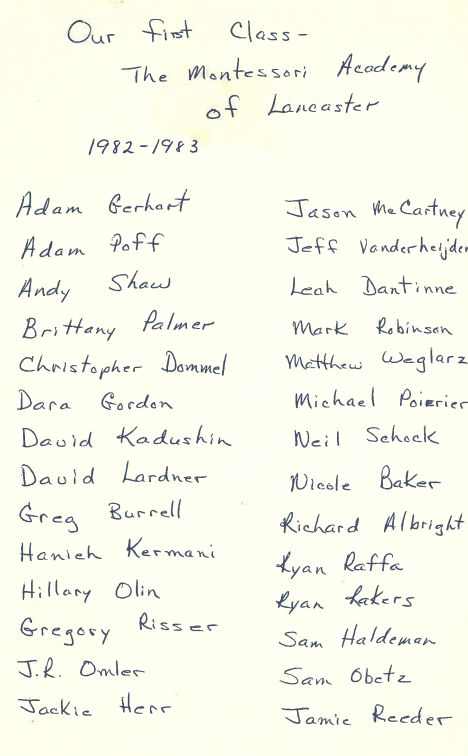 Our first Class -
The Montessori Academy
of Lancaster
1982-1983
Adam Gerhart
Adam Poff
Andy Shaw
Brittany Palmer
Christopher Dommel
Dara Gordon
David Kadushin
David Lardner
Greg Burrell
Hanieh Kermani
Hillary Olin
Gregory Risser
J.R. Omler
Jackie Herr
Jason McCartney
Jeff Vanderheijden
Leah Dantinne
Mark Robinson
Matthew Weglarz
Michael Poirrier
Neil Schock
Nicole Baker
Richard Albright
Ryan Raffa
Ryan
Sam Haldeman
Sam Obetz
Jamie Reeder